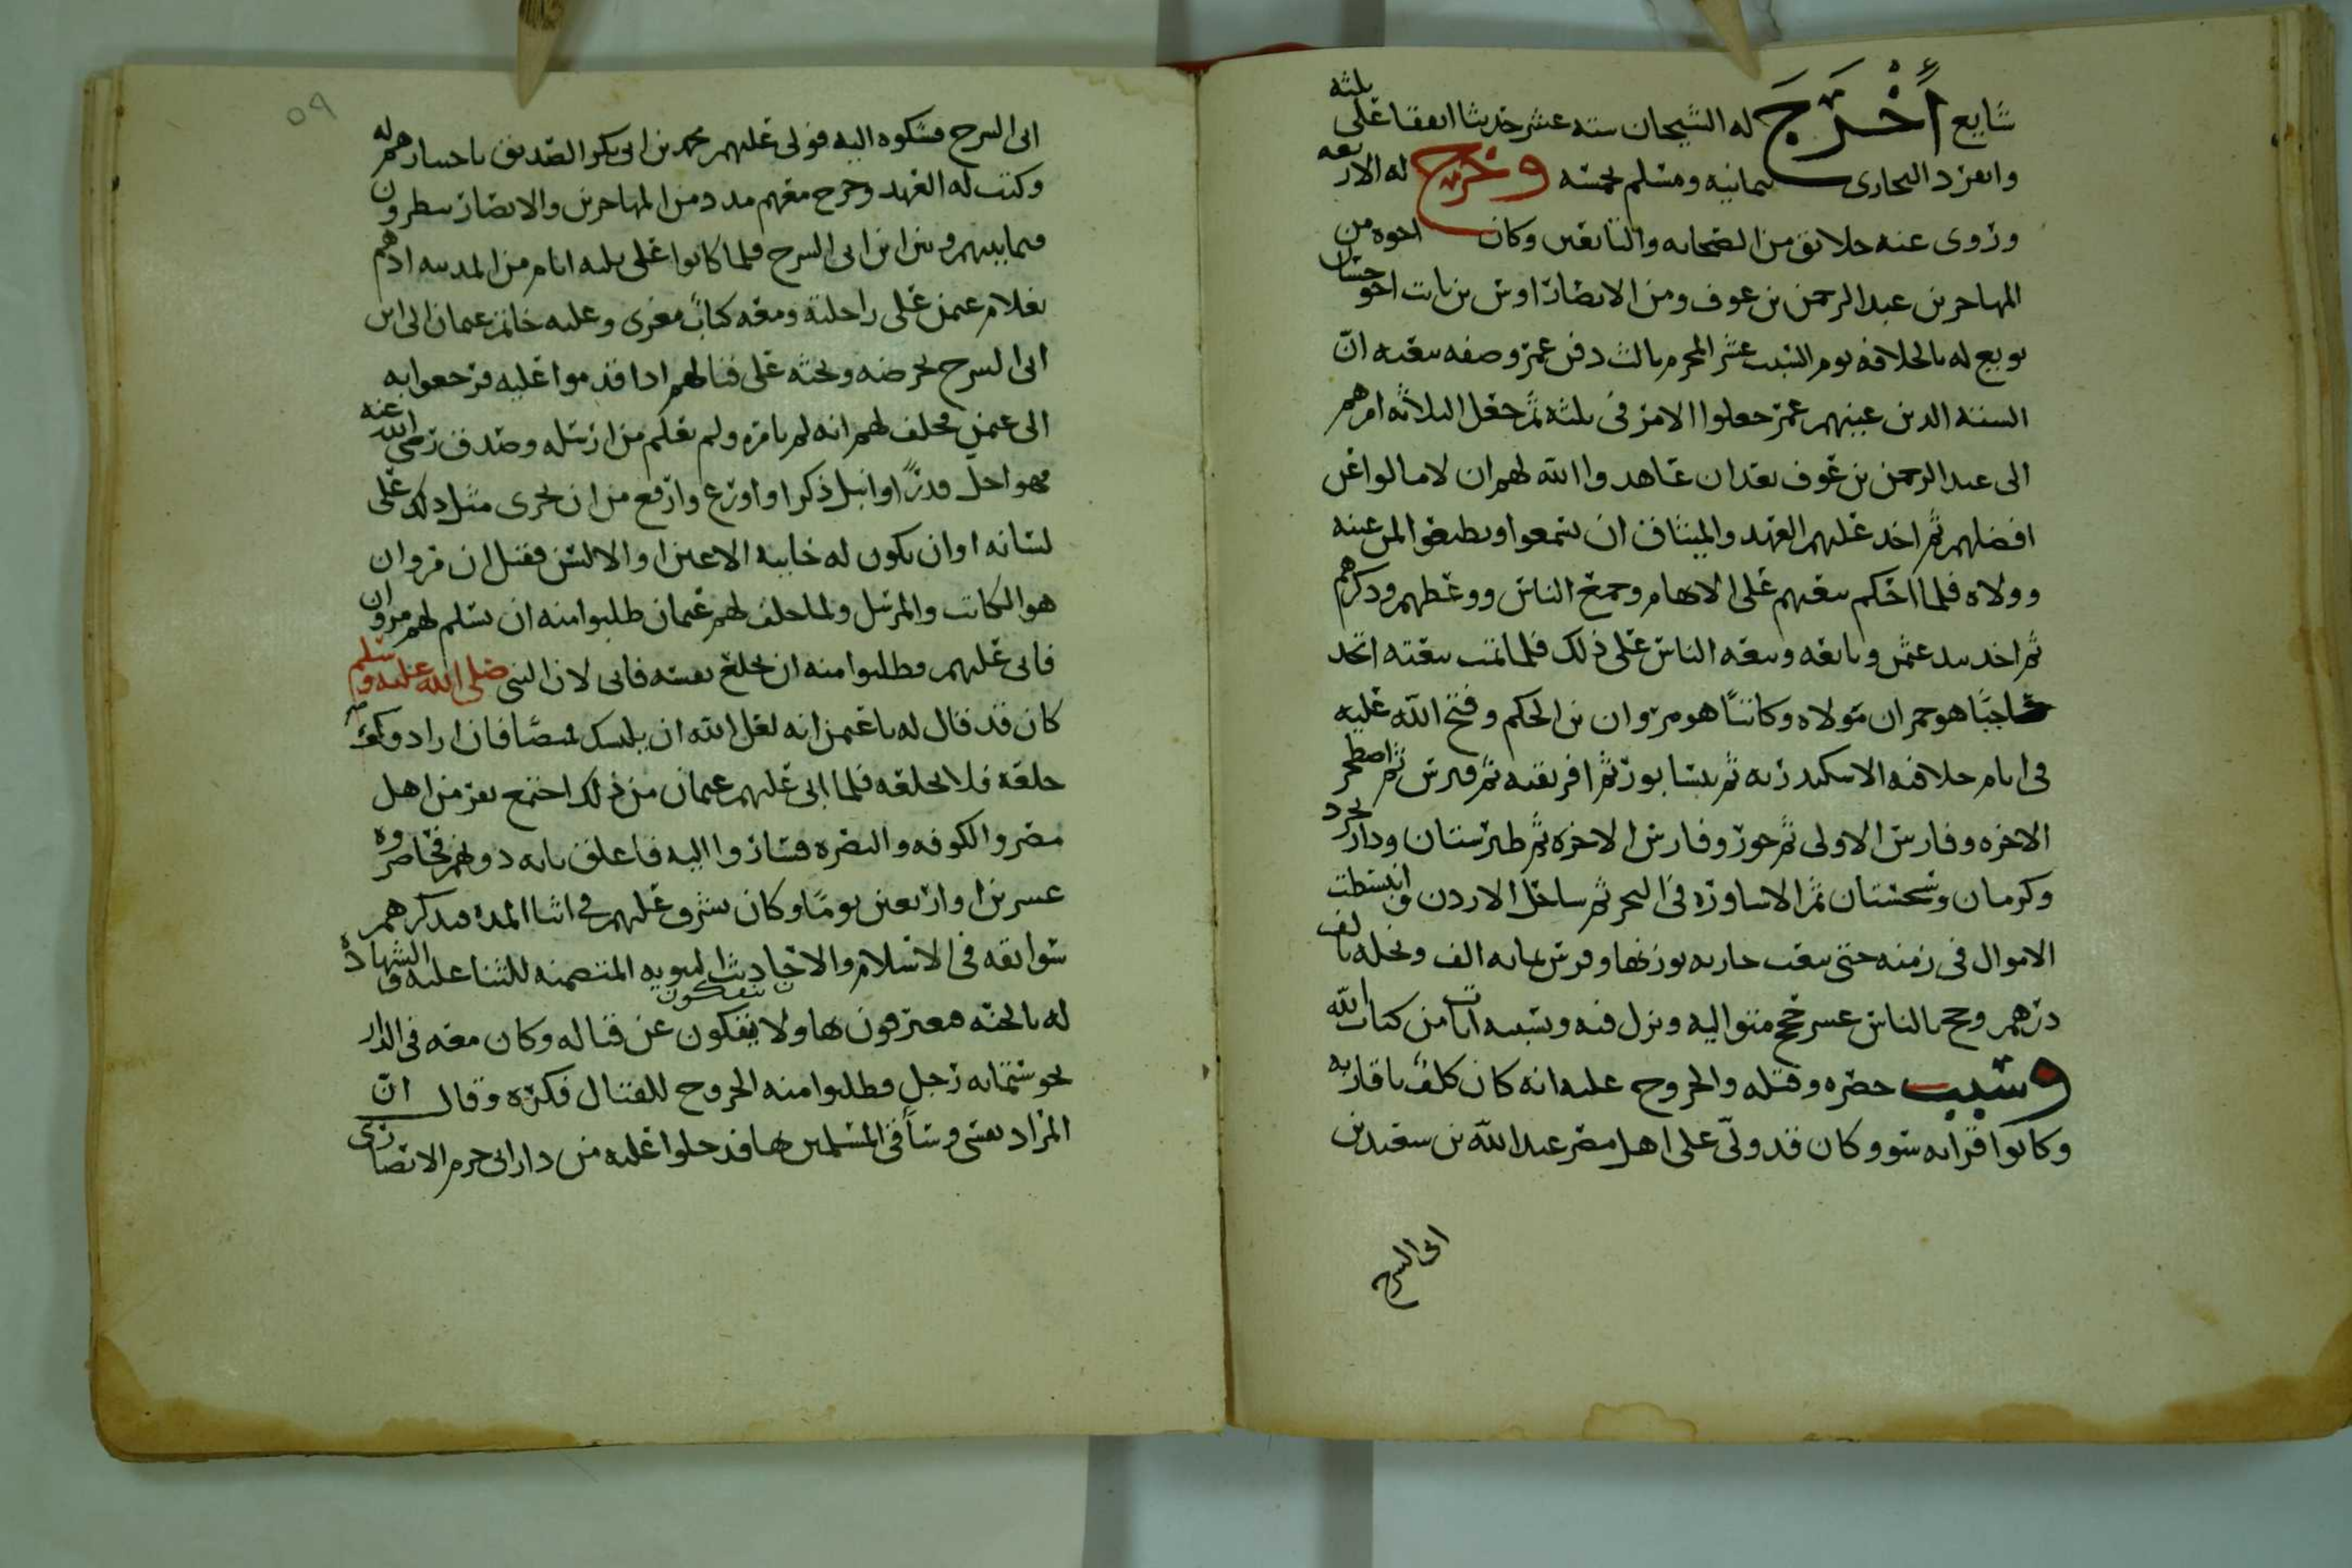 شايع أَخْرَجَ له الشيخان سته عشر حديثا اتفقا على ثلثه
وانفرد البخارى بثمانيه ومسلم بخمسه وخرج له الاربعه
وروى عنه خلائق من الصحابه والتابعين وكان اخوه من
المهاجرين عبد الرحمن بن عوف ومن الانصار اوس بن ثابت اخو حسان
بويع له بالخلافه يوم السبت عشر المحرم ثالث دفن عمر وصفه بيعته انّ
السته الذين عينهم عمر جعلوا الامر فى ثلثه ثم جعل الثلاثه امرهم
الى عبد الرحمن بن عوف بعد ان عاهدوا الله لهم ان لا مالوا عن
افضلهم ثم اخذ عليهم العهد والميثاق ان يسمعوا ويطيعوا لمن عينه
وولاه فلما احكم بيعتهم على الابهام وجمع الناس ووعظهم وذكرهم
ثم اخذ بيد عثمن وبايعه وبيعه الناس على ذلك فلما تمت بيعته اتخذ
حاجبًا هو حمران مولاه وكاتبًا هو مروان بن الحكم وفتح الله عليه
فى ايام خلافته الاسكندريه ثم نيسابور ثم افريقيه ثم قبرس ثم اصطخر
الاخره وفارس الاولى ثم خور وفارس الاخره ثم طبرستان ودارابجرد
وكرمان وسجستان ثم الاساوره فى البحر ثم ساحل الاردن وانبسطت
الاموال فى زمنه حتى بيعت جاريه بوزنها وفرس بمايه الف ونخله بالف
درهم وحج بالناس عشر حجج متواليه ونزل فيه وبسببه ايات من كتاب الله
وسبب حصره وقتله والخروج عليه انه كان كلف باقاربه
وكانوا قرابه سو وكان قد ولّى على اهل مصر عبد الله بن سعيد بن
ابى السرح
٥٩
ابى السرح فشكوه اليه فولى عليهم محمد بن ابى بكر الصديق باختيارهم له
وكتب له العهد وخرج معهم مدد من المهاجرين والانصار ينظرون
فيما بينهم وبين ابن ابى السرح فلما كانوا على ثلثه ايام من المدينه اذ هم
بغلام عثمن على راحلته ومعه كتاب مفترى وعليه خاتم عثمان الى ابن
ابى السرح يحرضه ويحثه على قتالهم اذا قدموا عليه فرجعوا به
الى عثمن فحلف لهم انه لم يامره ولم يعلم من ارسله وصدق رضى الله عنه
فهو اجل قدرًا وانبل ذكرا واورع وارفع من ان يجرى مثل ذلك على
لسانه او ان يكون له خاينه الاعين او الالسن فقيل ان مروان
هو الكاتب والمرسل ولما حلف لهم عثمان طلبوا منه ان يسلم لهم مروان
فابى عليهم وطلبوا منه ان يخلع نفسه فابى لان النبى صلى الله عليه وسلم
كان قد قال له يا عثمن انه لعل الله ان يلبسك قميصًا فان ارادوك على
خلعه فلا تخلعه فلما ابى عليهم عثمان من ذلك اجتمع نفر من اهل
مصر والكوفه والبصره فساروا اليه فاغلق بابه دونهم فحاصروه
عشرين او اربعين يومًا وكان يشرف عليهم فى اثنا المده فيذكرهم
سوابقه فى الاسلام والاحاديث النبويه المتضمنه للثنا عليه والشهاده
له بالجنه فيعترفون بها ولا ينفكون عن قتاله وكان معه فى الدار
ينفكون
نحو ستمايه رجل وطلبوا منه الخروج للقتال فكره وقال ان
المراد نفسى وساقى المسلمين بها فدخلوا عليه من دار ابى حزم الانصارى